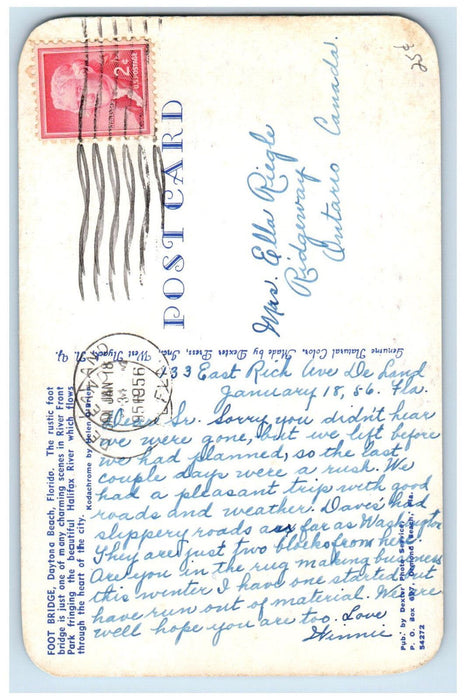 25¢
2¢
U.S. POSTAGE
POST CARD
Mrs. Ella Riegle
Ridgeway
Ontario Canada.
DE LAND
JAN 18
1956
FLA.
Genuine Natural Color, Made by Dexter Press, Inc. West Nyack, N. Y.
33 East Rich Ave De Land
January 18, 56. Fla.
Dear Sr. Sorry you didn't hear
we were gone, but we left before
we had planned, so the last
couple days were a rush. We
had a pleasant trip with good
roads and weather. Daves' had
slippery roads as far as Washington
They are just two blocks from here
Are you in the rug making business
this winter I have one started but
have run out of material. We are
well hope you are too. Love
Winnie
FOOT BRIDGE, Daytona Beach, Florida. The rustic foot
bridge is just one of many charming scenes in River Front
Park fringing the beautiful Halifax River which flows
through the heart of the city.
Kodachrome by Helen
Pub. by Dexter Photo Service
P. O. Box 697, Ormond Beach, Fla.
54272